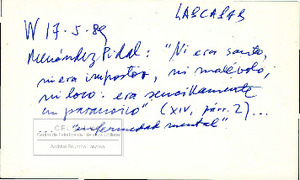 LASCASAS
W 17-5-89
Menéndez Pidal: "Ni era santo,
ni era impostor, ni malévolo,
ni loco: era sencillamente
un paranoico" (XIV, párr. 2)...
... enfermedad mental"